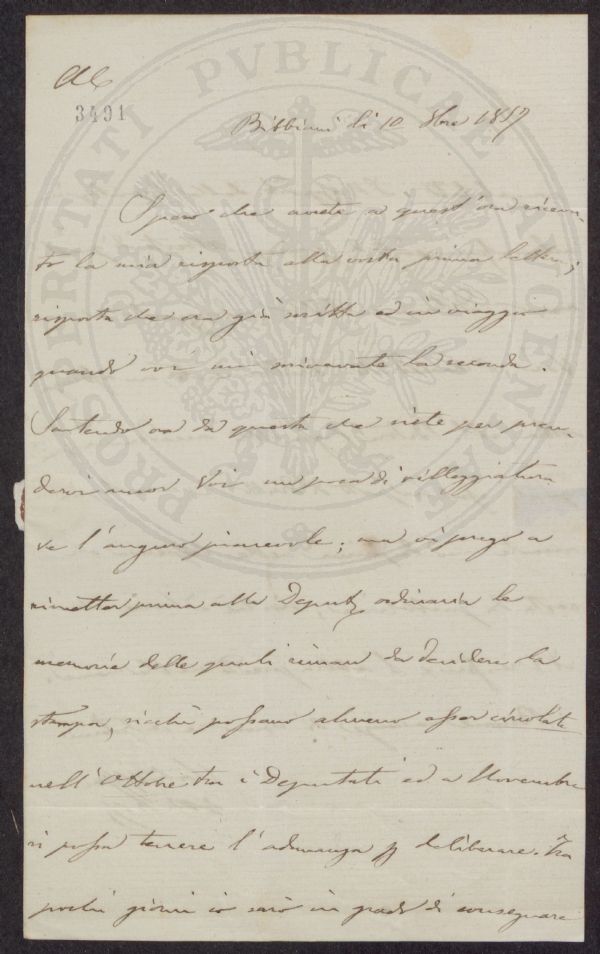 3491
Bibbiani li 10 8bre 1857
Spero che avrete a quest'ora ricevu-
to la mia risposta alla vostra prima lettera;
risposta che era già scritta ed in viaggio
quando voi mi scrivevate la seconda.
Sentendo ora da questa che siete per pren-
dervi ancor Voi un poca di villeggiatura
ve l'auguro piacevole; ma vi prego a
rimetter prima alla Deputaz. ordinaria le
memorie delle quali riman da decidere la
stampa, sicchè possano almeno esser circolate
nell'Ottobre tra i Deputati ed a Novembre
si possa tenere l'adunanza p deliberare. Tra
pochi giorni io sarò in grado di consegnare
PROSPERITATI PVBLICAE AVGENDAE